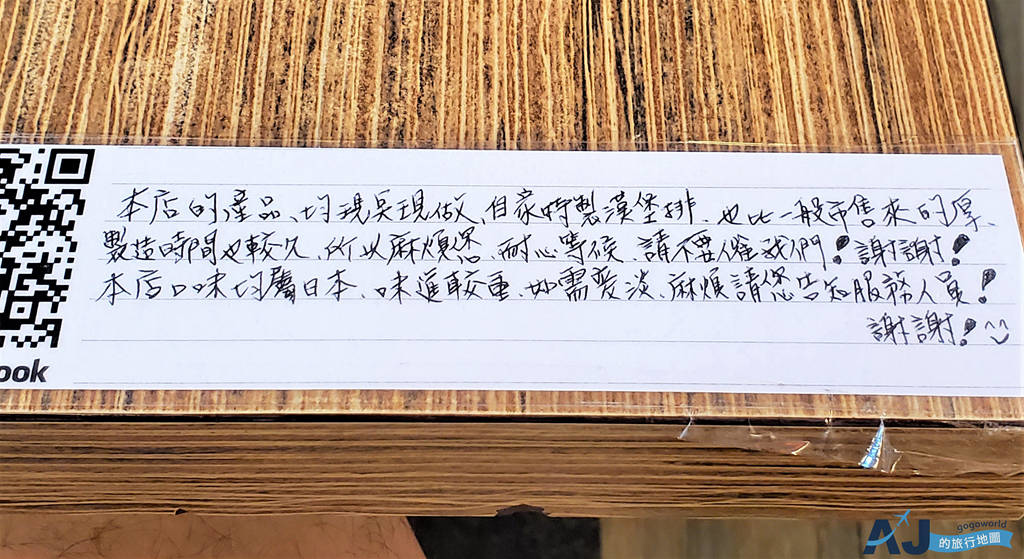 本店的產品、均現点現做、自家特製漢堡排、也比一般市售來的厚、
製造時間也較久、所以麻煩您、耐心等候、請不要催我們!謝謝!
本店口味均屬日本、味道較重、如需要淡、麻煩請您告知服務人員!
謝謝!^^
ook
AJ
gogoworld
的旅行地圖